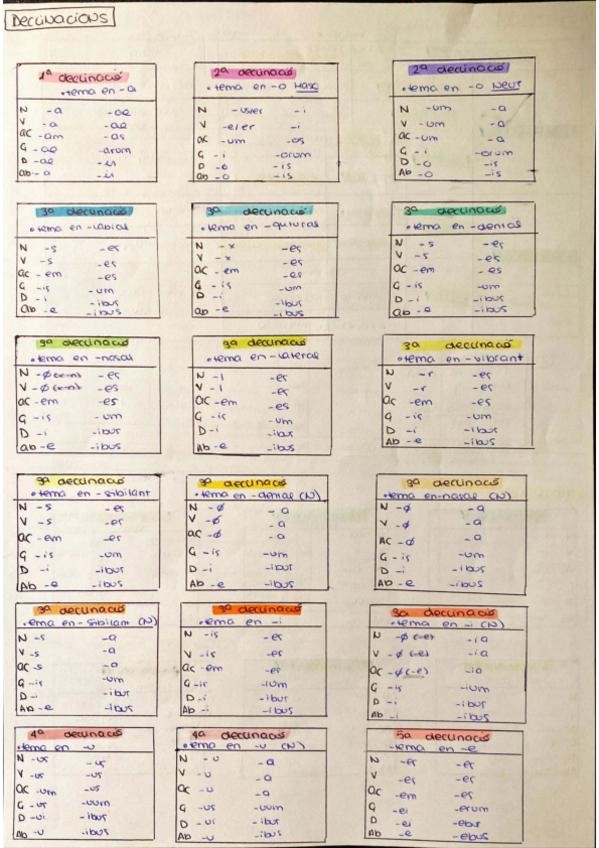 DECLINACIONS
1ª declinació
• tema en -a
N -a -ae
V -a -ae
ac -am -as
G -ae -arum
D -ae -is
ab -a -is
2ª declinació
• tema en -o Masc
N -us/er -i
V -e/er -i
ac -um -os
G -i -orum
D -o -is
ab -o -is
2ª declinació
• tema en -o Neut
N -um -a
V -um -a
ac -um -a
G -i -orum
D -o -is
Ab -o -is
3ª declinació
• tema en -labial
N -s -es
V -s -es
ac -em -es
G -is -um
D -i -ibus
ab -e -ibus
3ª declinació
• tema en -guturas
N -x -es
V -x -es
ac -em -es
G -is -um
D -i -ibus
ab -e -ibus
3ª declinació
• tema en -dental
N -s -es
V -s -es
ac -em -es
G -is -um
D -i -ibus
ab -e -ibus
3ª declinació
• tema en -nasal
N -ø -es
V -ø -es
ac -em -es
G -is -um
D -i -ibus
ab -e -ibus
3ª declinació
• tema en -lateral
N -l -es
V -l -es
ac -em -es
G -is -um
D -i -ibus
Ab -e -ibus
3ª declinació
• tema en -vibrant
N -r -es
V -r -es
ac -em -es
G -is -um
D -i -ibus
Ab -e -ibus
3ª declinació
• tema en -sibilant
N -s -es
V -s -es
ac -em -es
G -is -um
D -i -ibus
Ab -e -ibus
3ª declinació
• tema en -dental (N)
N -ø -a
V -ø -a
ac -ø -a
G -is -um
D -i -ibus
Ab -e -ibus
3ª declinació
• tema en -nasal (N)
N -ø -a
V -ø -a
AC -ø -a
G -is -um
D -i -ibus
Ab -e -ibus
3ª declinació
• tema en -sibilant (N)
N -s -a
V -s -a
ac -s -a
G -is -um
D -i -ibus
Ab -e -ibus
3ª declinació
• tema en -i
N -is -es
V -is -es
ac -em -es
G -is -ium
D -i -ibus
Ab -i -ibus
3ª declinació
• tema en -i (N)
N -ø (-e) -ia
V -ø (-e) -ia
ac -ø (-e) -ia
G -is -ium
D -i -ibus
Ab -i -ibus
4ª declinació
• tema en -u
N -us -us
V -us -us
ac -um -us
G -us -uum
D -ui -ibus
Ab -u -ibus
4ª declinació
• tema en -u (N)
N -u -a
V -u -a
ac -u -a
G -us -uum
D -ui -ibus
Ab -u -ibus
5ª declinació
-tema en -e
N -es -es
V -es -es
ac -em -es
G -ei -erum
D -ei -ebus
Ab -e -ebus